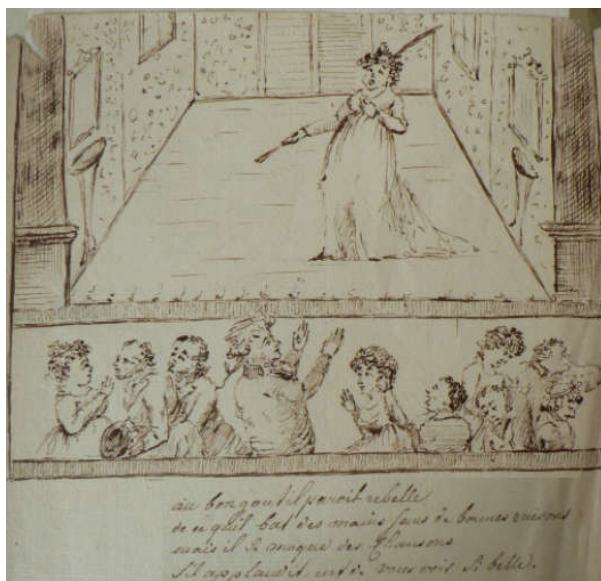 au bon gout il paroit rebelle
de ce qu'il bat des mains sans de bonnes raisons
mais il se moque des Chansons
s'il applaudit c'est de vous voir si belle.